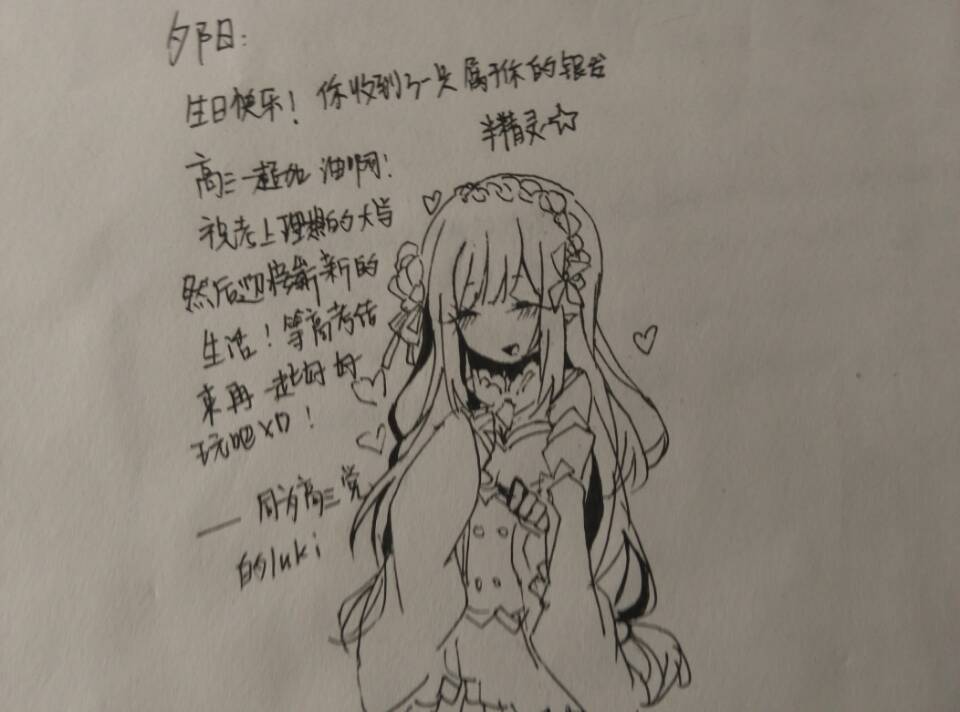 夕阳:
生日快乐! 你收到了一只属于你的银发
半精灵~☆
高三一起加油啊!
祝考上理想的大学
然后迎接崭新的
生活!等高考结
束再一起好好
玩吧XD!
——同为高三党
的luki